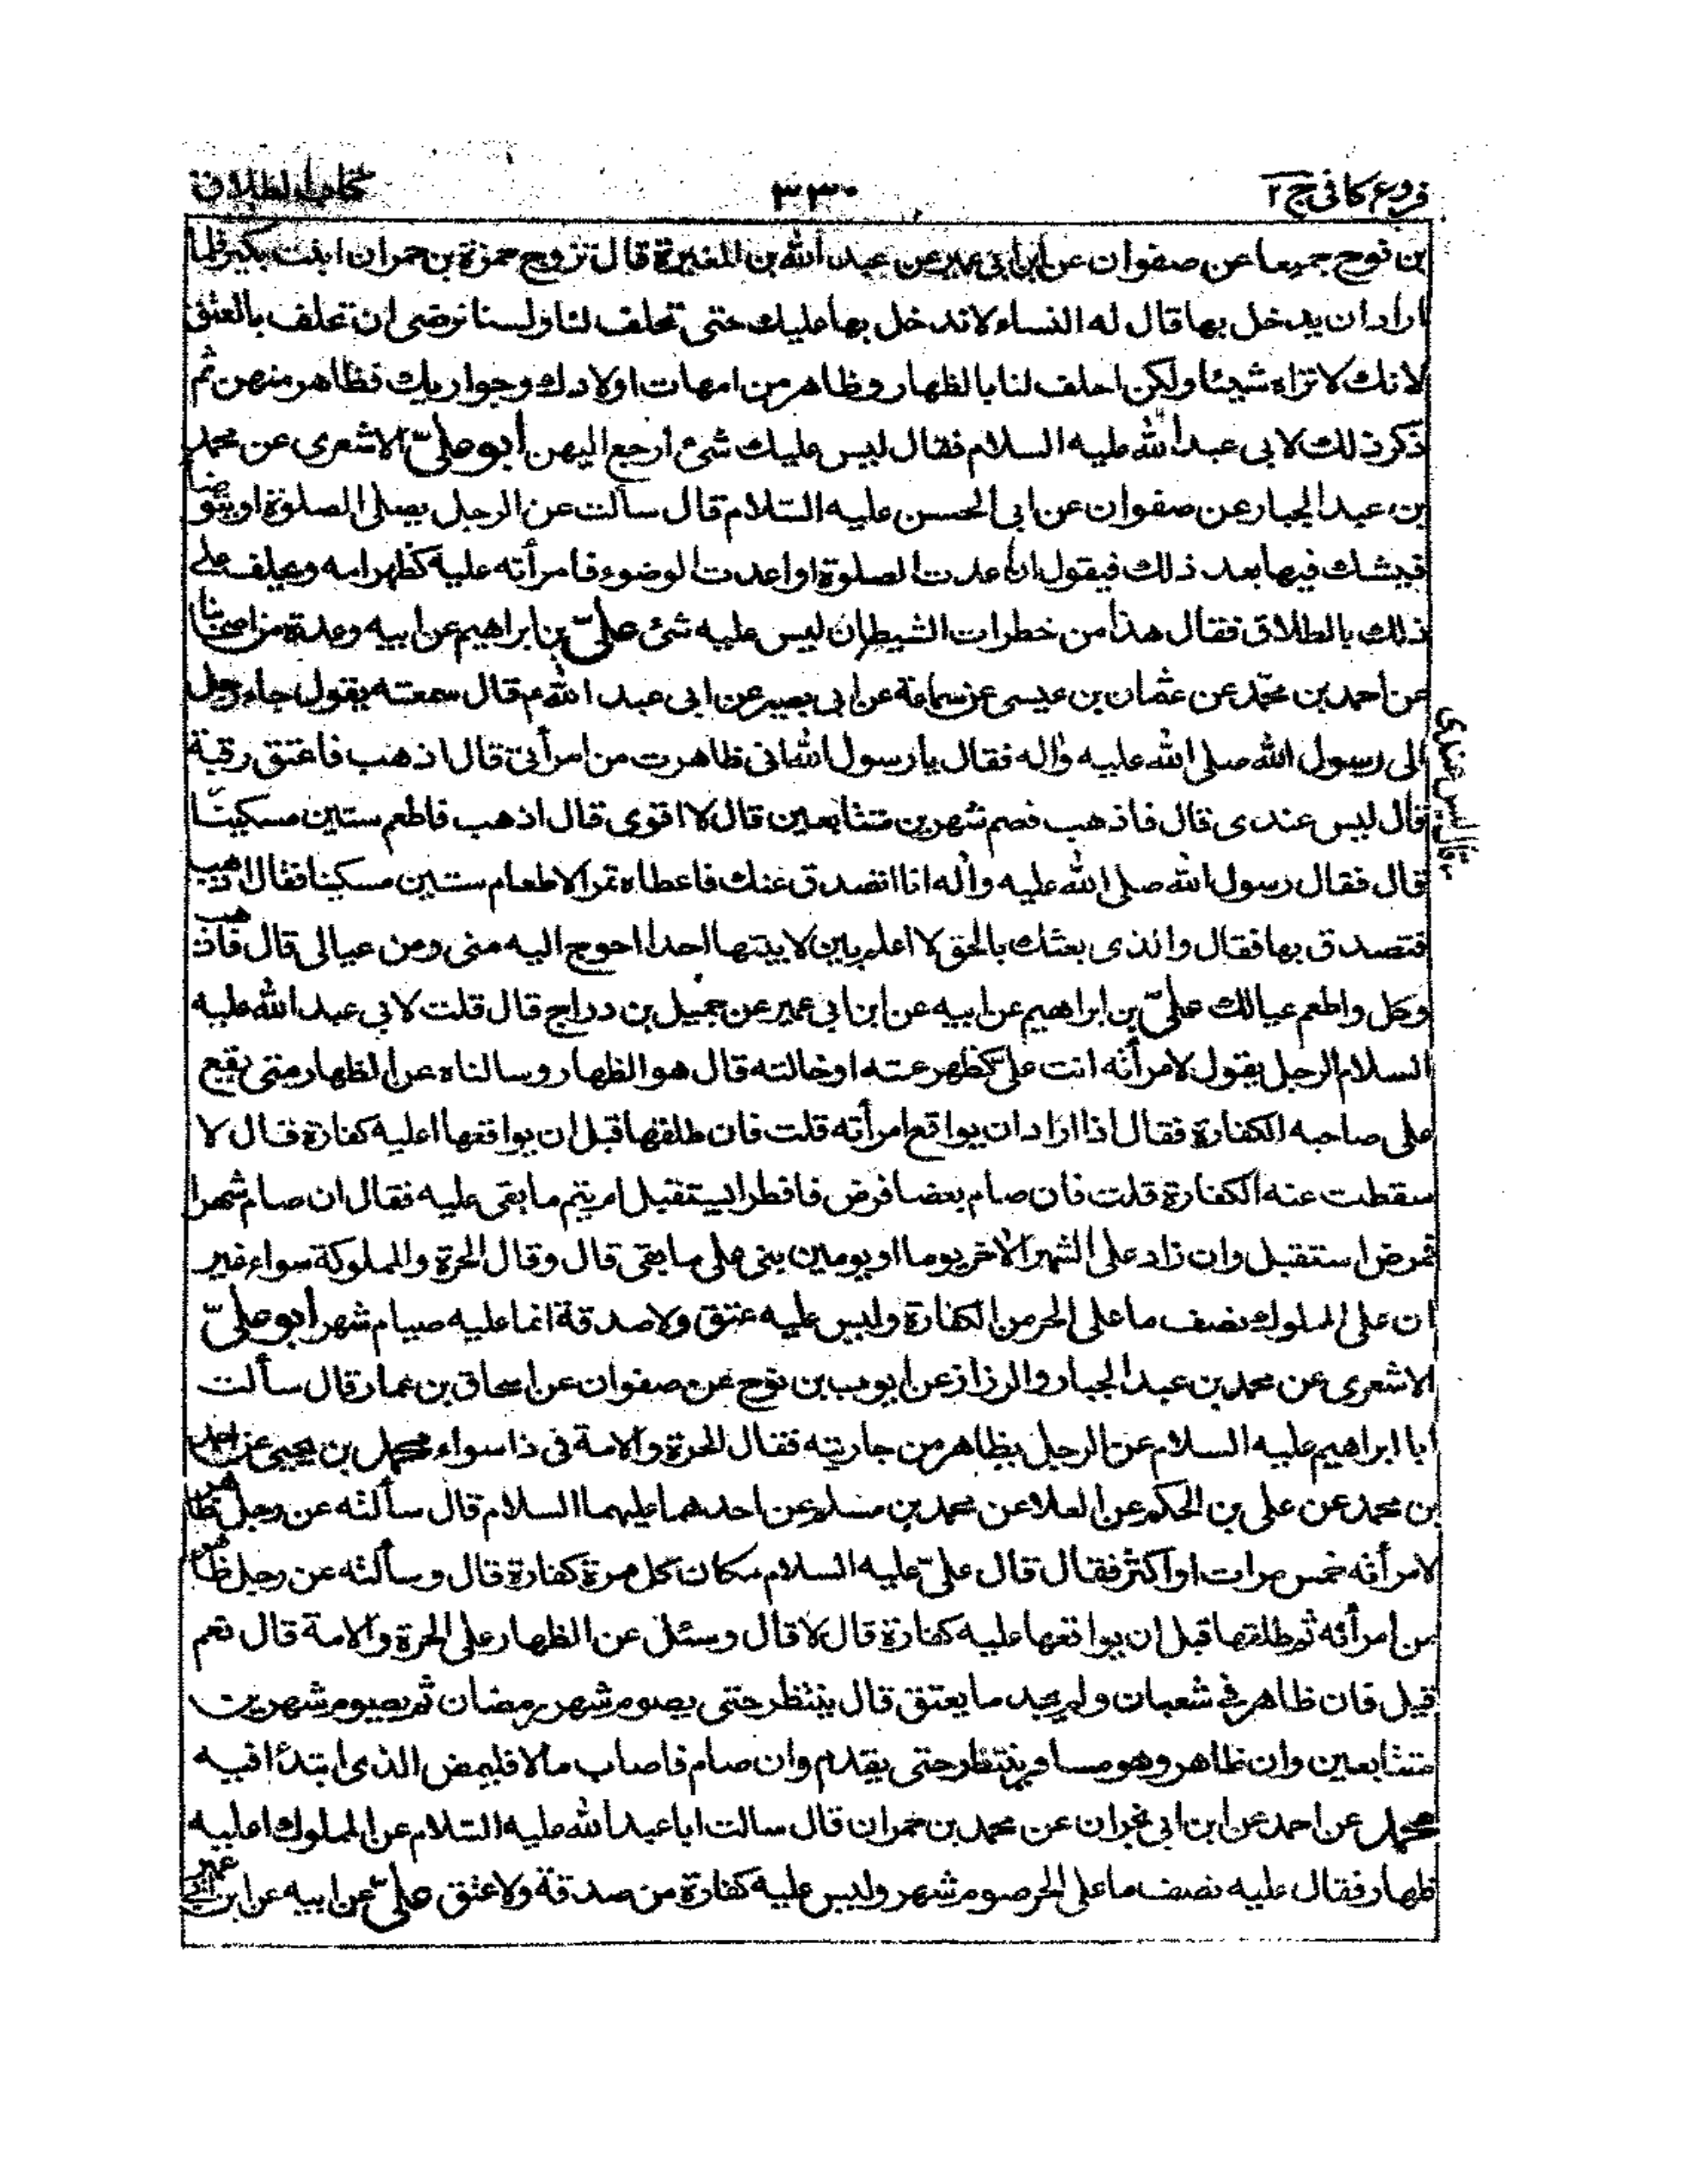 فروع كافى ج ٢
٣٣٠
كتاب الطلاق
بن نوح جميعا عن صفوان عن ابن ابى عمير عن عبد الله بن المغيرة قال تزوج حمزة بن حمران ابنت بكير فلما
اراد ان يدخل بها قال له النساء لا ندخل بها عليك حتى تحلف لنا ولسنا نرضى ان تحلف بالعتق
لانك لا تراه شيئا ولكن احلف لنا بالظهار وظاهر من امهات اولادك وجواريك فظاهر منهن ثم
ذكر ذلك لابى عبد الله عليه السلام فقال ليس عليك شئ ارجع اليهن أبو علىّ الاشعرى عن محمد
بن عبد الجبار عن صفوان عن ابى الحسن عليه السّلام قال سألت عن الرجل يصلى الصلوة او يتوضا
فيشك فيها بعد ذلك فيقول ان اعدت الصلوة او اعدت الوضوء فامرأته عليه كظهر امه ويحلف على
ذلك بالطلاق فقال هذا من خطرات الشيطان ليس عليه شئ علىّ بن ابراهيم عن ابيه وعدة من اصحابنا
عن احمد بن محمّد عن عثمان بن عيسى عن سماعة عن ابى بصير عن ابى عبد الله م قال سمعته يقول جاء رجل
الى رسول الله صلى الله عليه واله فقال يا رسول الله انى ظاهرت من امرأتى قال اذهب فاعتق رقبة
قال ليس عندى قال فاذهب فصم شهرين متتابعين قال لا اقوى قال اذهب فاطعم ستين مسكينا
قال ليس عندى
قال فقال رسول الله صلى الله عليه واله انا اتصدق عنك فاعطاه تمرا لاطعام ستين مسكينا فقال اذهب
فتصدق بها فقال والذى بعثك بالحق لا اعلم بين لابيتها احدا احوج اليه منى ومن عيالى قال فاذهب
وكل واطعم عيالك علىّ بن ابراهيم عن ابيه عن ابن ابى عمير عن جميل بن دراج قال قلت لابى عبد الله عليه
السلام الرجل يقول لامرأته انت علىّ كظهر عمته او خالته قال هو الظهار وسالناه عن الظهار متى يقع
على صاحبه الكفارة فقال اذا اراد ان يواقع امرأته قلت فان طلقها قبل ان يواقعها اعليه كفارة قال لا
سقطت عنه الكفارة قلت فان صام بعضا فمرض فافطر ايستقبل ام يتم ما بقى عليه فقال ان صام شهرا
فمرض استقبل وان زاد على الشهر الاخر يوما او يومين بنى على ما بقى قال وقال الحرة والمملوكة سواء غير
ان على المملوك نصف ما على الحر من الكفارة وليس عليه عتق ولا صدقة انما عليه صيام شهر أبو علىّ
الاشعرى عن محمد بن عبد الجبار والرزاز عن ايوب بن نوح عن صفوان عن اسحاق بن عمار قال سألت
ابا ابراهيم عليه السلام عن الرجل يظاهر من جاريته فقال الحرة والامة فى ذا سواء محمد بن يحيى عن احمد
بن محمد عن على بن الحكم عن العلا عن محمد بن مسلم عن احدهما عليهما السلام قال سألته عن رجل ظاهر
لامرأته خمس مرات او اكثر فقال قال علىّ عليه السلام مكان كل مرة كفارة قال وسألته عن رجل ظاهر
من امرأته ثم طلقها قبل ان يواقعها عليه كفارة قال لا قال وسئل عن الظهار على الحرة والامة قال نعم
قيل فان ظاهر فى شعبان ولم يجد ما يعتق قال ينتظر حتى يصوم شهر رمضان ثم يصوم شهرين
متتابعين وان ظاهر وهو مسافر ينتظر حتى يقدم وان صام فاصاب مالا فليمض الذى ابتدأ فيه
محمد عن احمد عن ابن ابى نجران عن محمد بن حمران قال سالت ابا عبد الله عليه السّلام عن المملوك اعليه
ظهار فقال عليه نصف ما على الحر صوم شهر وليس عليه كفارة من صدقة ولا عتق علىّ عن ابيه عن ابن ابى عمير